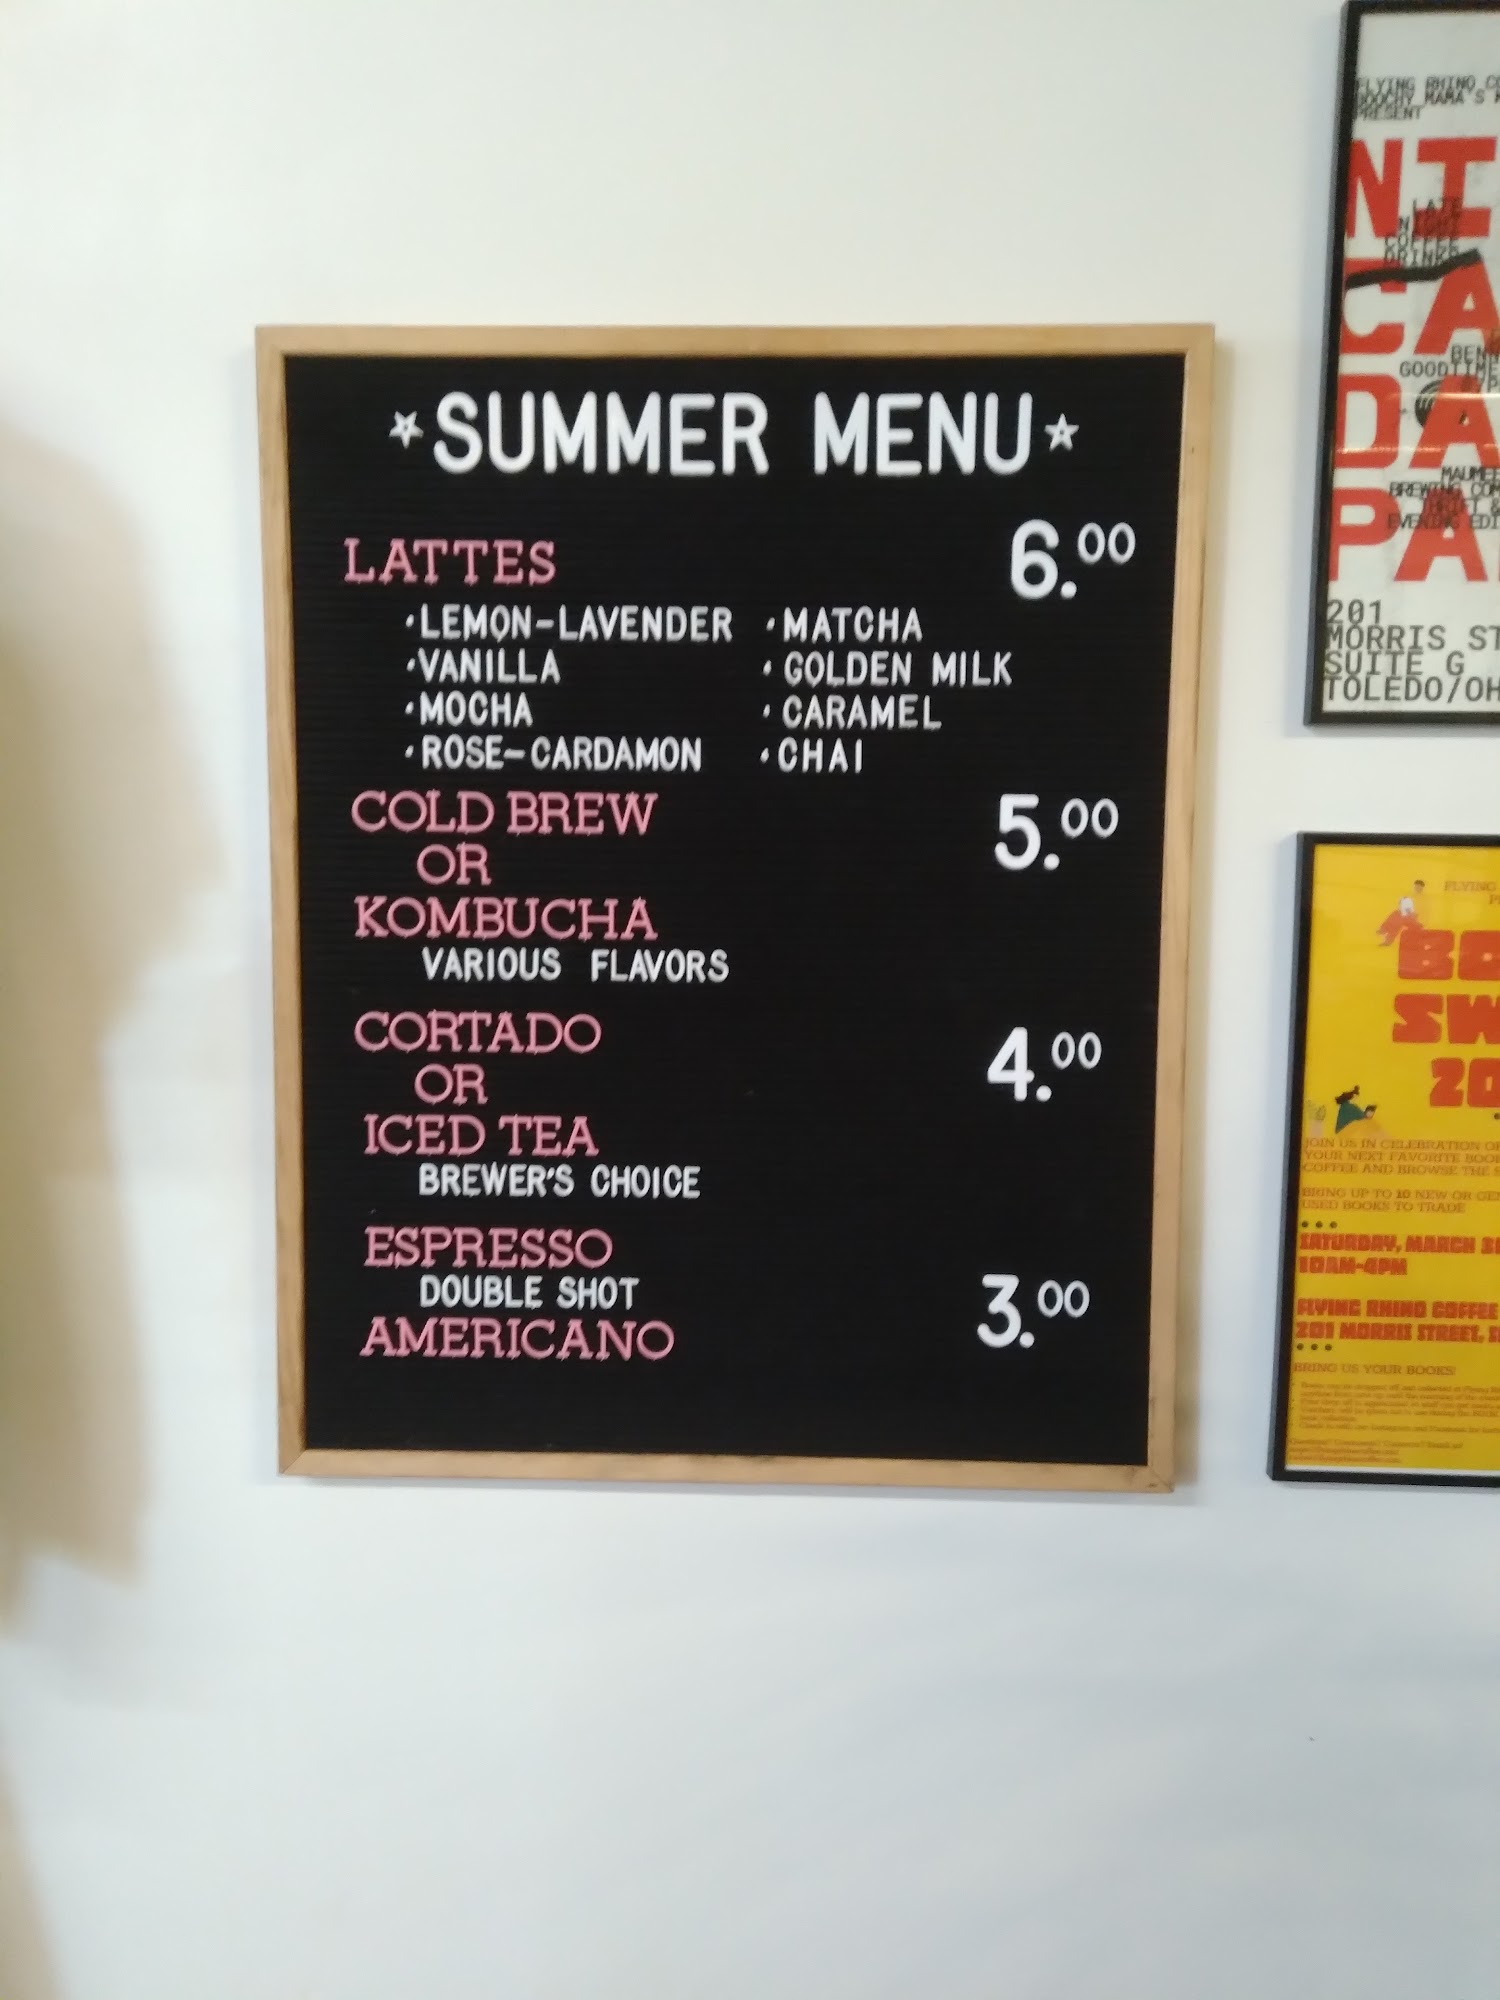 SUMMER MENU
LATTES 6.00
·LEMON-LAVENDER ·MATCHA
·VANILLA ·GOLDEN MILK
·MOCHA ·CARAMEL
·ROSE-CARDAMON ·CHAI
COLD BREW 5.00
OR
KOMBUCHA
VARIOUS FLAVORS
CORTADO 4.00
OR
ICED TEA
BREWER'S CHOICE
ESPRESSO
DOUBLE SHOT 3.00
AMERICANO
FLYING RHINO
BOOCHY MAMA'S
PRESENT
NI
LATE
NIGHT
COFFEE
DRINKS
CA
GOODTIME
DA
MAUMEE
BREWING
THRIFT &
EVENING
PA
201
MORRIS ST
SUITE G
TOLEDO/OH
FLYING
BO
SW
20
JOIN US IN CELEBRATION
YOUR NEXT FAVORITE
COFFEE AND BROWSE THE
BRING UP TO 10 NEW OR
USED BOOKS TO TRADE
SATURDAY, MARCH
10AM-4PM
FLYING RHINO COFFEE
201 MORRIS STREET,
BRING US YOUR BOOKS!